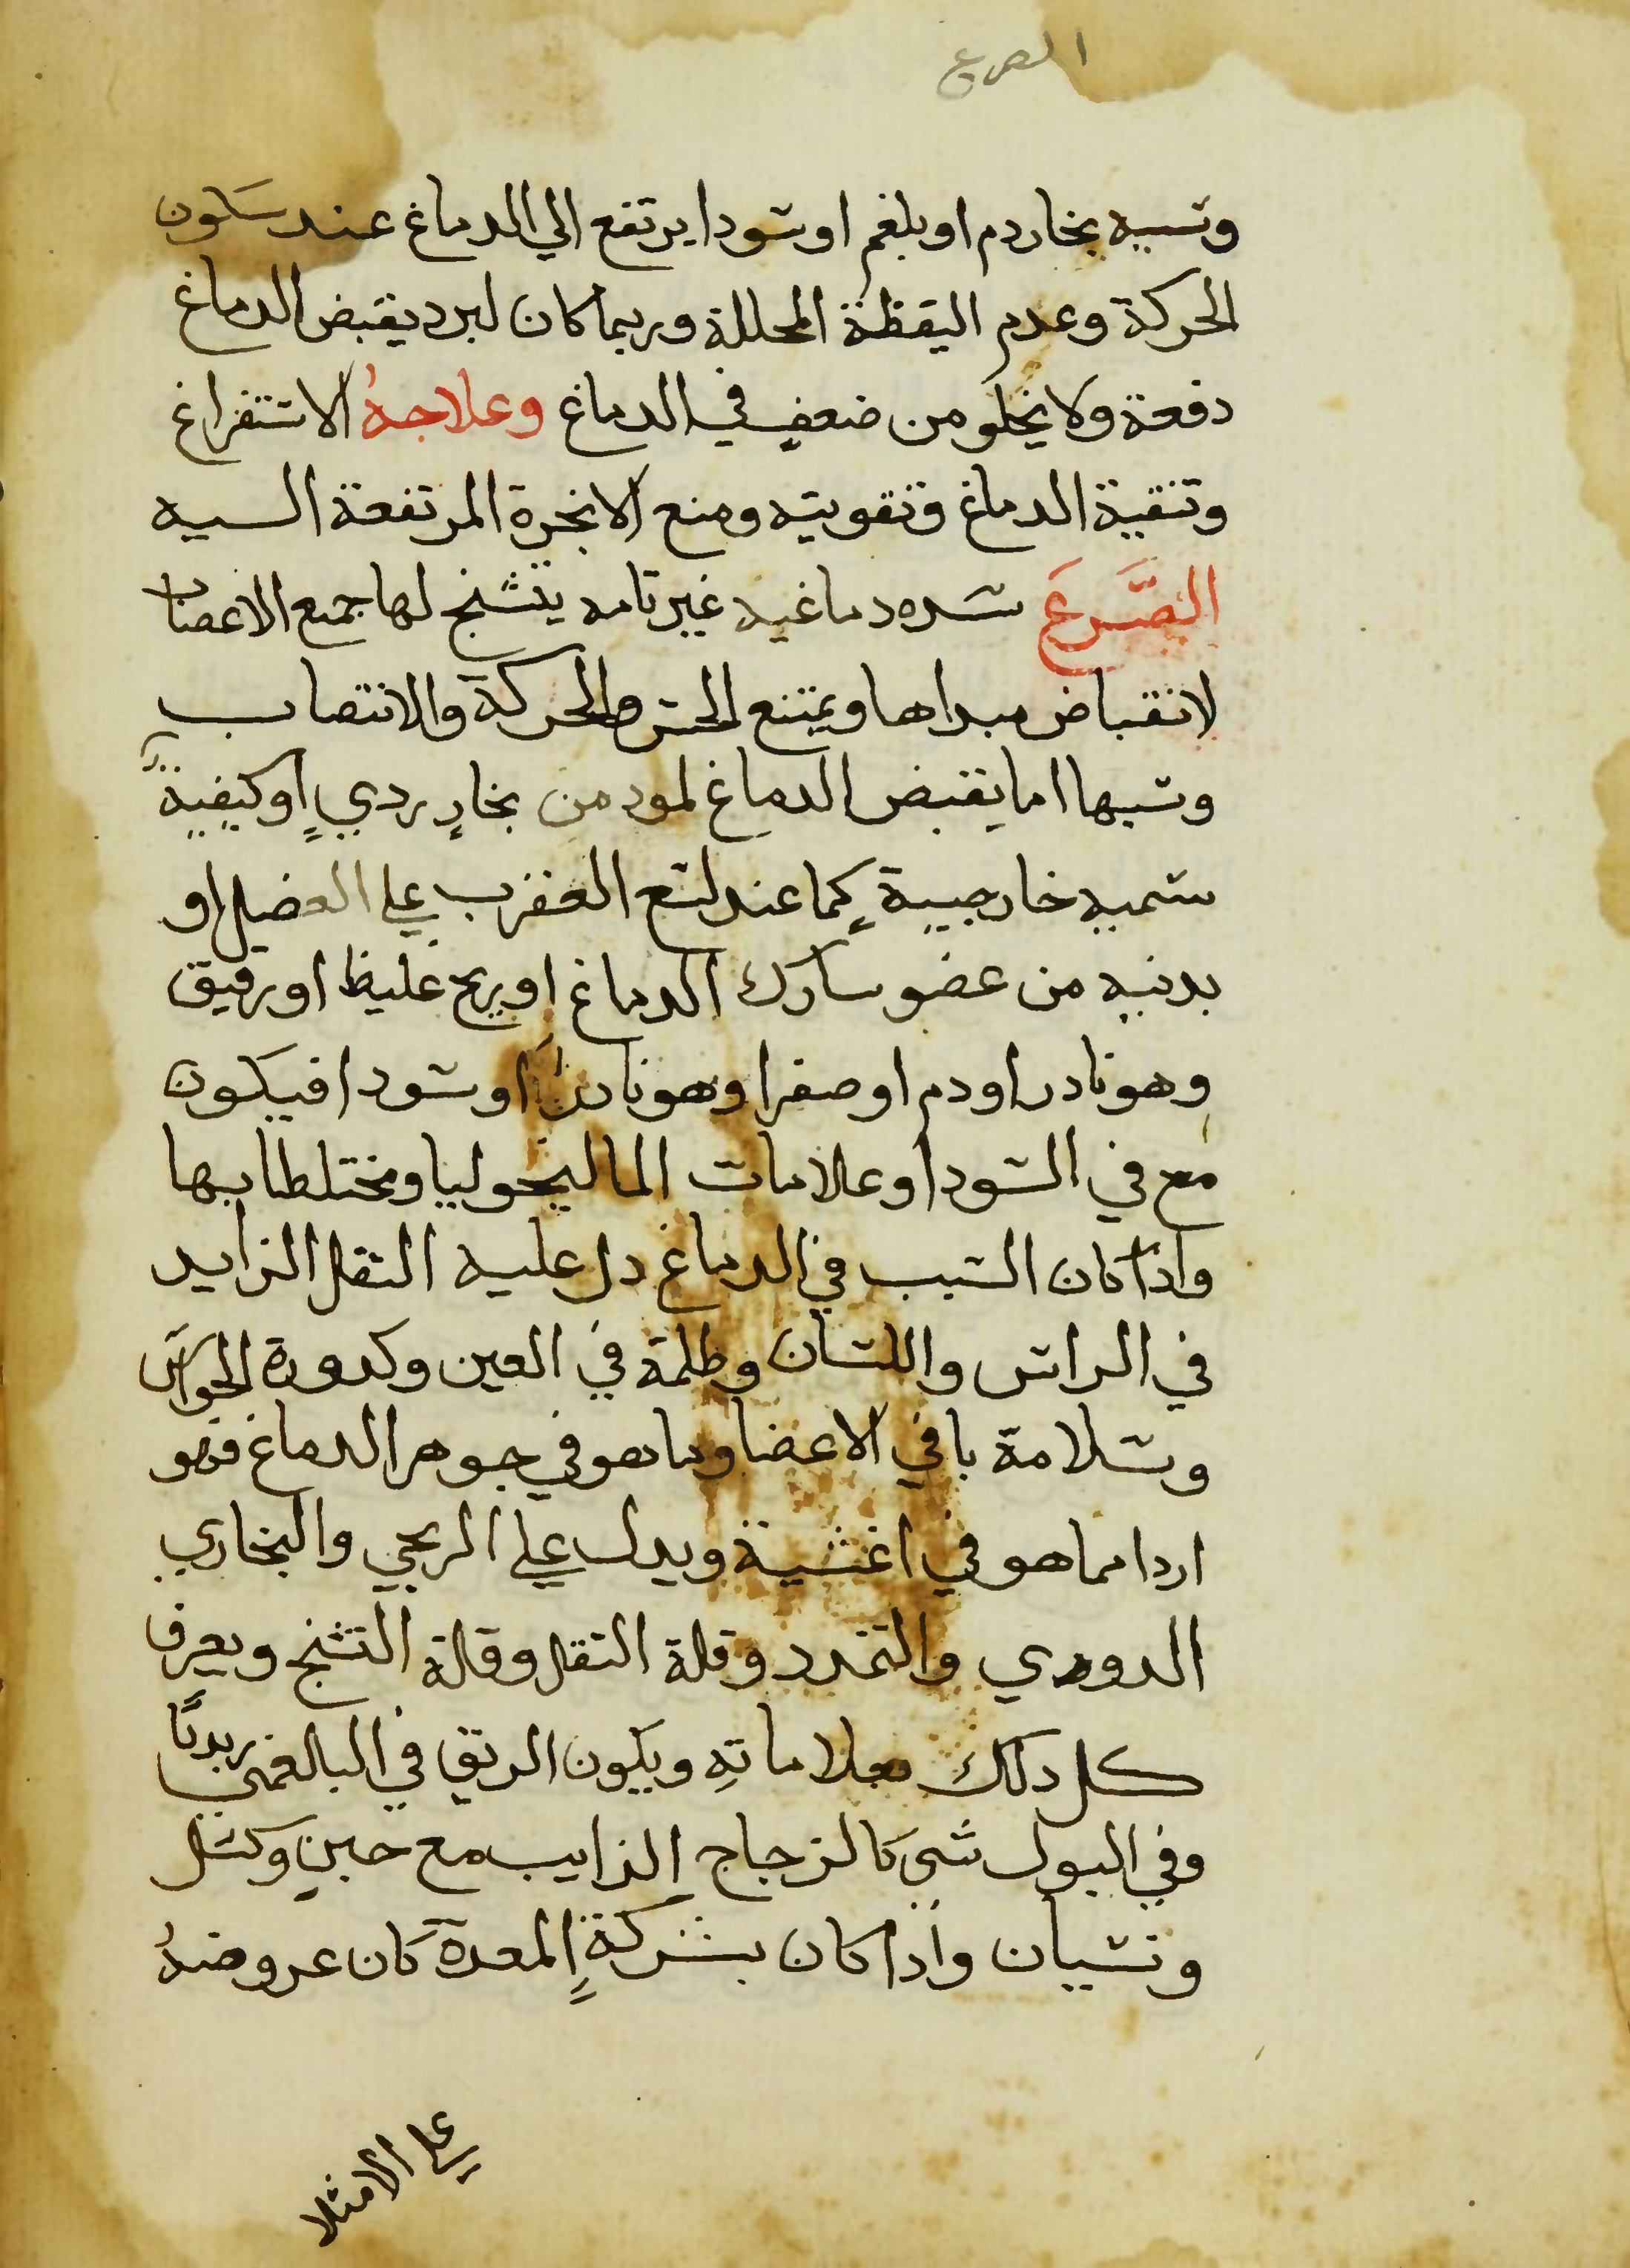 الصرع
وسببه بخار دم او بلغم او سودا يرتفع الي الدماغ عند سكون
الحركة وعدم اليقظة المحللة وربما كان لبرد يقبض الدماغ
دفعة ولا يخلو من ضعفٍ في الدماغ وعلاجهُ الاستفراغ
وتنقية الدماغ وتقويته ومنع الابخرة المرتفعة اليه
الصَّرعَ سده دماغيه غير تامه يتشنج لها جميع الاعصاب
لانقباض مبداها ويمتنع الحس والحركة والانتصاب
وسببها اما يقبض الدماغ لمود من بخارٍ رديٍ او كيفية
سميه خارجيية كما عند لسع العقرب علي العضل او
بدنيه من عضو سارك الدماغ او ريح غليظ او رقيق
وهو نادر او دم او صفرا وهو نادر او سودا فيكون
مع في السودا وعلامات الماليخوليا ومختلطا بها
واذا كان السبب في الدماغ دل عليه الثقل الزايد
في الراس واللسان وظلمة في العين وكدورة الحواس
وسلامة باقي الاعضا وما هو في جوهر الدماغ فهو
اردا مما هو في اغشية ويدل علي الريحي والبخاري
الدوري والتمدد وقلة الثقل وقلة التشنج ويعرف
كل دلك بعلاماتهِ ويكون الريق في البالغمي زبديًا
وفي البول شي كالزجاج الذايب مع جبنٍ وكسل
ونسيان واذا كان بشركةِ المعدة كان عروضهُ
علي الامتلا